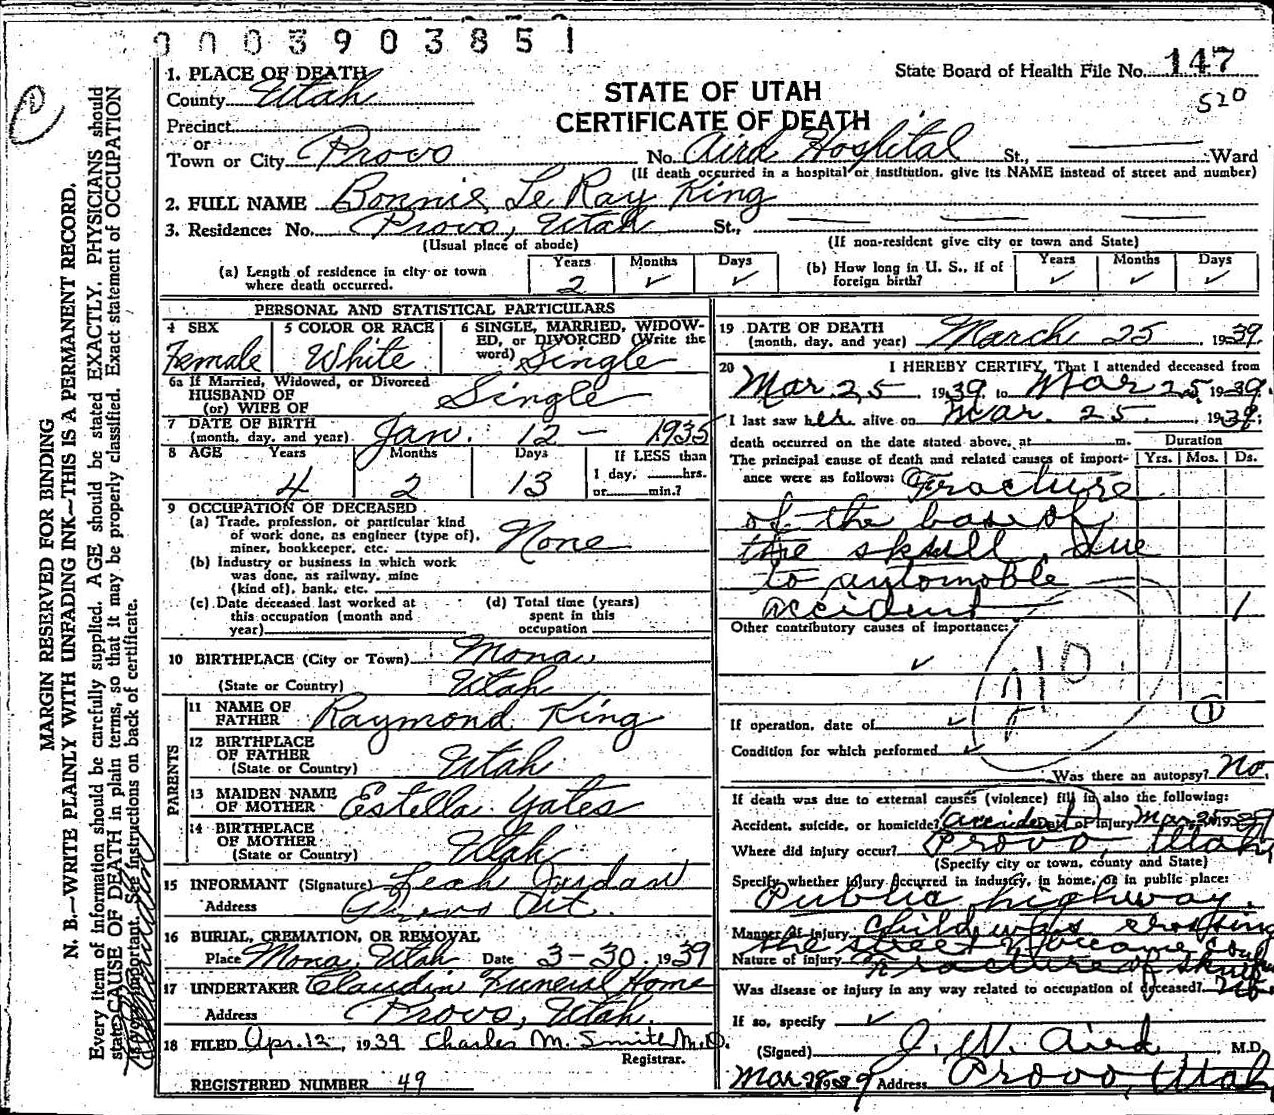 0003903851
1. PLACE OF DEATH
County Utah
Precinct
or
Town or City Provo
STATE OF UTAH
CERTIFICATE OF DEATH
State Board of Health File No. 147
520
No. Aird Hospital St., Ward
(If death occurred in a hospital or institution, give its NAME instead of street and number)
2. FULL NAME Bonnie Le Ray King
3. Residence: No. Provo, Utah St.,
(Usual place of abode) (If non-resident give city or town and State)
(a) Length of residence in city or town where death occurred. Years 2 Months ✓ Days ✓
(b) How long in U. S., if of foreign birth? Years ✓ Months ✓ Days ✓
PERSONAL AND STATISTICAL PARTICULARS
4 SEX Female
5 COLOR OR RACE White
6 SINGLE, MARRIED, WIDOWED, or DIVORCED (Write the word) Single
6a If Married, Widowed, or Divorced
HUSBAND OF
(or) WIFE OF Single
7 DATE OF BIRTH
(month, day, and year) Jan. 12 - 1935
8 AGE Years 4 Months 2 Days 13 If LESS than 1 day, hrs. or min.?
9 OCCUPATION OF DECEASED
(a) Trade, profession, or particular kind of work done, as engineer (type of), miner, bookkeeper, etc. None
(b) Industry or business in which work was done, as railway, mine (kind of), bank, etc.
(c) Date deceased last worked at this occupation (month and year)
(d) Total time (years) spent in this occupation
10 BIRTHPLACE (City or Town) Mona
(State or Country) Utah
PARENTS
11 NAME OF FATHER Raymond King
12 BIRTHPLACE OF FATHER
(State or Country) Utah
13 MAIDEN NAME OF MOTHER Estella Yates
14 BIRTHPLACE OF MOTHER
(State or Country) Utah
15 INFORMANT (Signature) Leah Jordan
Address Provo Ut.
16 BURIAL, CREMATION, OR REMOVAL
Place Mona, Utah Date 3-30, 1939
17 UNDERTAKER Claudin Funeral Home
Address Provo, Utah.
18 FILED Apr. 12, 1939 Charles M. Smith M.D.
Registrar.
REGISTERED NUMBER 49
19 DATE OF DEATH
(month, day, and year) March 25 1939.
20 I HEREBY CERTIFY, That I attended deceased from
Mar. 25 1939, to Mar 25, 1939.
I last saw her alive on Mar. 25, 1939;
death occurred on the date stated above, at m. Duration
The principal cause of death and related causes of importance were as follows: Yrs. Mos. Ds.
Fracture
of the base of
the skull, due
to automoble
accident 1
Other contributory causes of importance:
✓
210
1
If operation, date of ✓
Condition for which performed ✓
Was there an autopsy? No.
If death was due to external causes (violence) fill in also the following:
Accident, suicide, or homicide? Accident Date of Injury Mar. 25 1939
Where did injury occur? Provo, Utah
(Specify city or town, county and State)
Specify whether injury occurred in industry, in home, or in public place:
Public highway.
Manner of injury Child was crossing
the street &
Nature of injury Fracture of skull
Was disease or injury in any way related to occupation of deceased? No.
If so, specify ✓
(Signed) J. W. Aird, M.D.
Address Provo, Utah
MARGIN RESERVED FOR BINDING
N. B.—WRITE PLAINLY WITH UNFADING INK—THIS IS A PERMANENT RECORD.
Every item of information should be carefully supplied. AGE should be stated EXACTLY. PHYSICIANS should
state CAUSE OF DEATH in plain terms, so that it may be properly classified. Exact statement of OCCUPATION
is very important. See instructions on back of certificate.